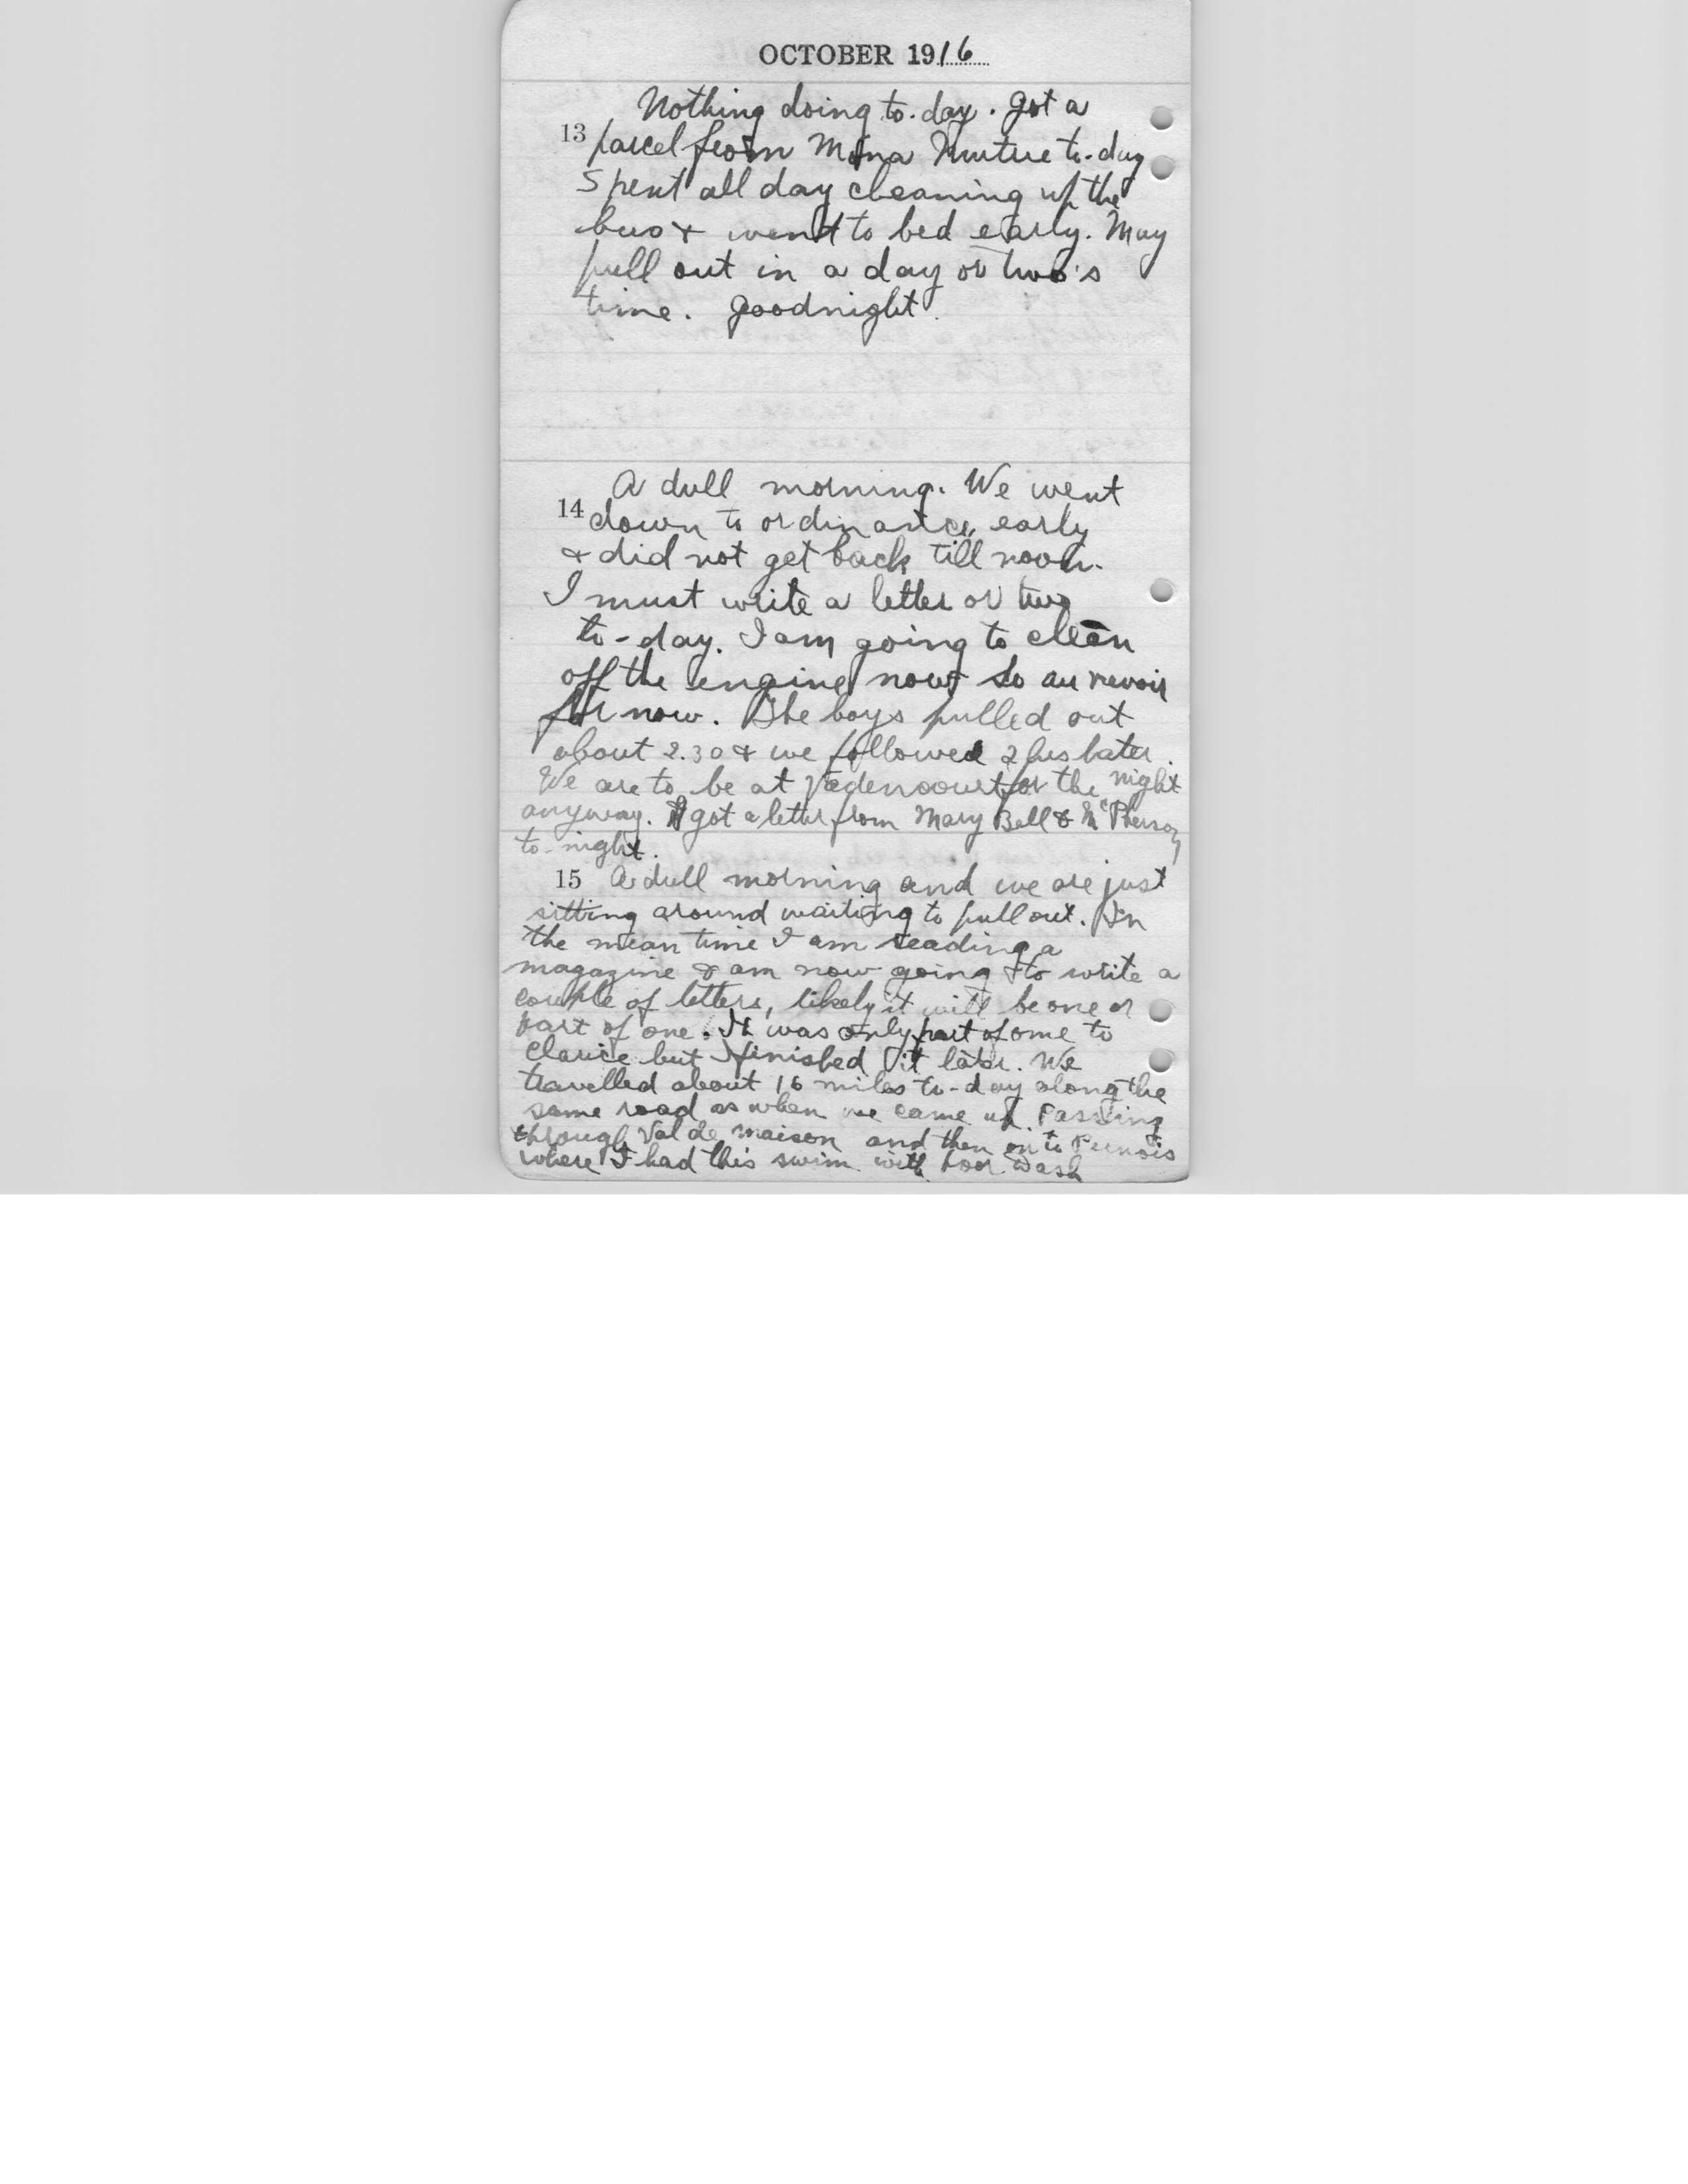 OCTOBER 1916
Nothing doing to-day. Got a
13 parcel from Mona to-day
Spent all day cleaning up the
bus & went to bed early. May
pull out in a day or two's
time. Goodnight.
A dull morning. We went
14 down to ordinance early
& did not get back till noon.
I must write a letter or two
to-day. I am going to clean
off the engine now so au revoir
for now. The boys pulled out
about 2.30 & we followed 2 hrs later.
We are to be at Vadencourt for the night
anyway. I got a letter from Mary Bell & McPherson
to-night.
15 A dull morning and we are just
sitting around waiting to pull out. In
the mean time I am reading a
magazine & am now going to write a
couple of letters, likely it will be one or
part of one. It was only part of one to
Clarice but I finished it later. We
travelled about 16 miles to-day along the
same road as when we came up. Passing
through Val de Maison and then on to Pernois
where I had this swim with Poor Wash